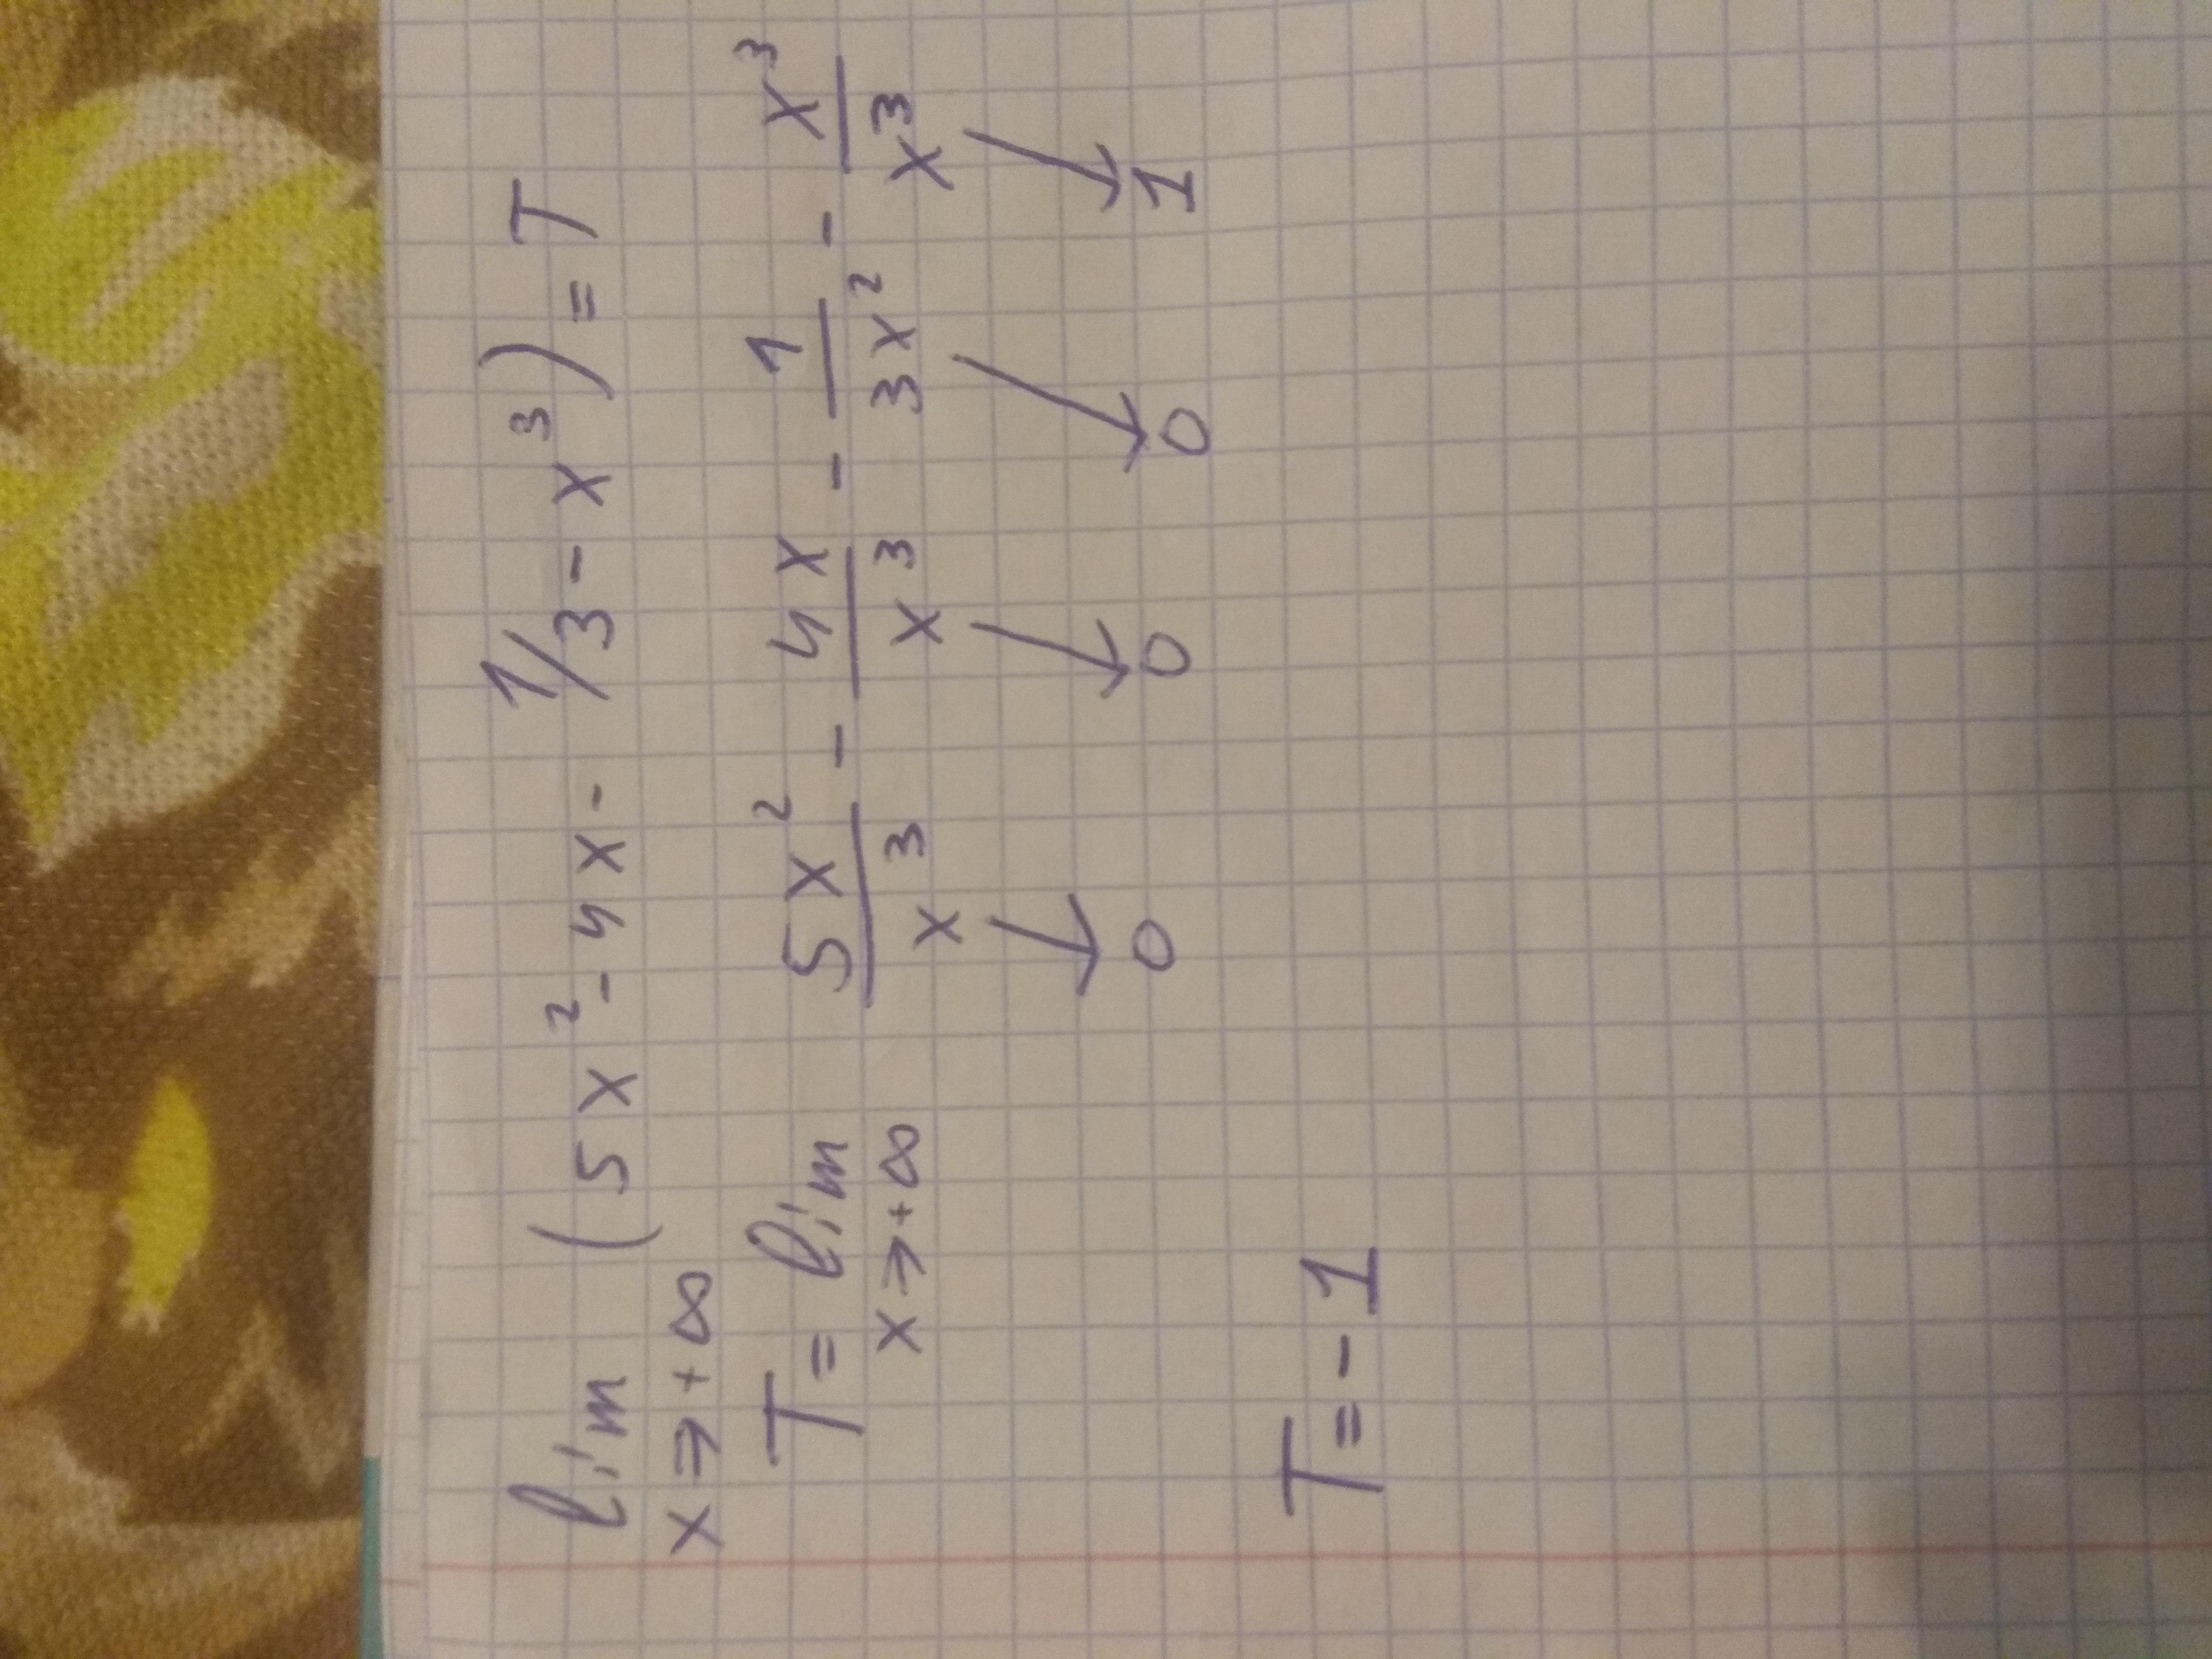 lim (5x² - 4x - 1/3 - x³) = T
x→+∞
T = lim 5x²/x³ - 4x/x³ - 1/3x² - x³/x³
x→+∞
0 0 0 1
T = -1